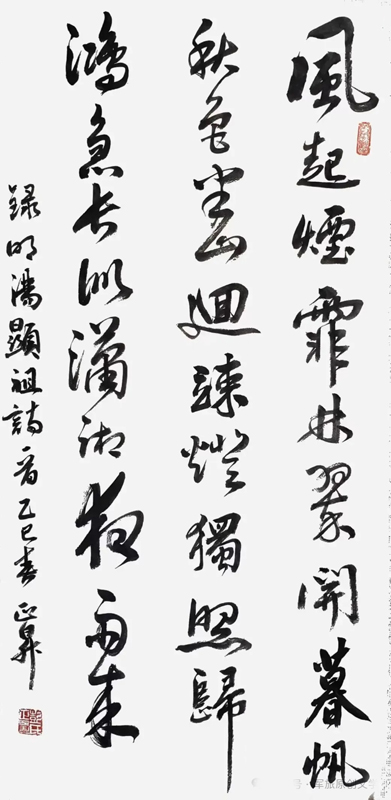 風起煙霏林翠開暮帆
秋色迴疎燈獨照歸
鴻急長似瀟湘夜雨來
錄明湯顯祖詩一首乙巳春